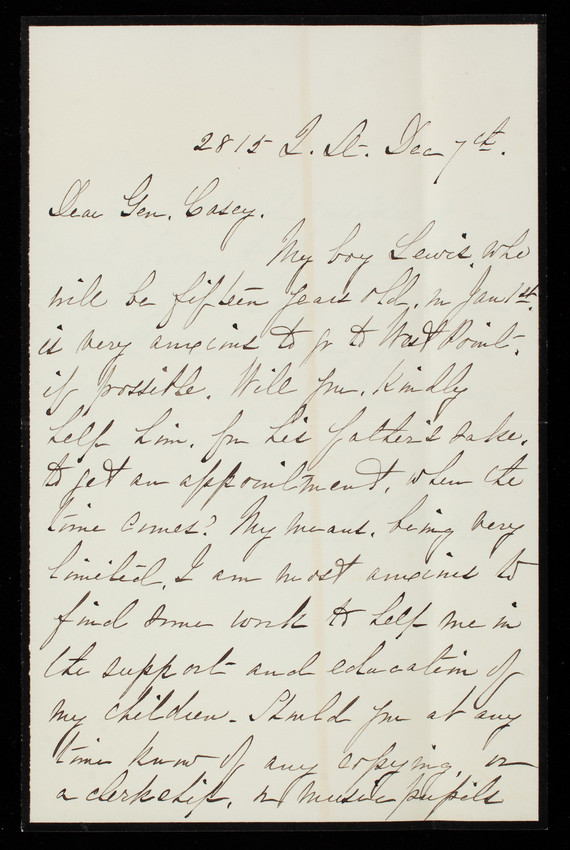 2815 Q. St. Dec 7th.
Dear Gen. Casey.
My boy Lewis, who
will be fifteen years old, in Jan 1st.
is very anxious to go to West Point.
if possible. Will you, kindly
help him, for his father's sake,
to get an appointment, when the
time comes? My means, being very
limited, I am most anxious to
find some work to help me in
the support and education of
my children. Should you at any
time know of any copying, or
a clerkship, or music pupils